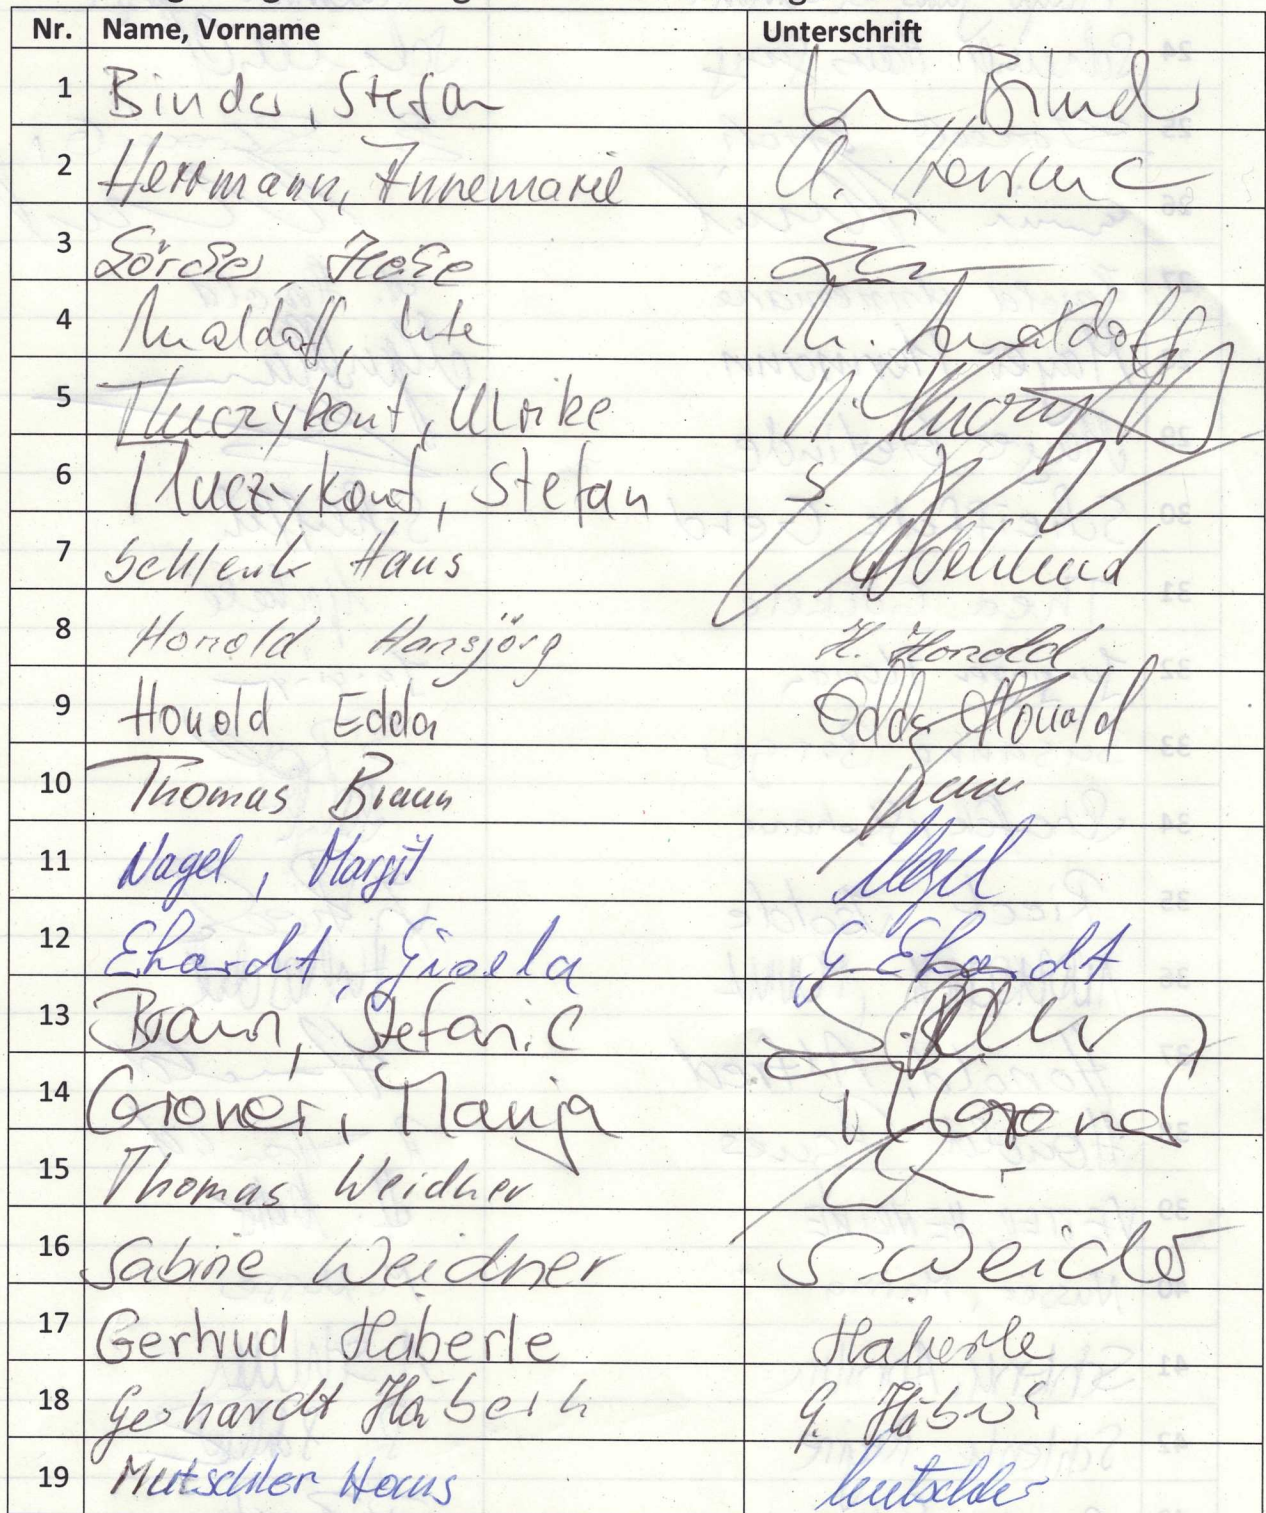 Nr. Name, Vorname Unterschrift
1 Binder, Stefan Binder
2 Herrmann, Annemarie A. Herrmann
3
4 Ute
5 Tluczykont, Ulrike
6 Tluczykont, Stefan S.
7 Schlenk Hans
8 Honold Hansjörg H. Honold
9 Honold Edda Edda Honold
10 Thomas Braun Braun
11 Nagel, Margit Nagel
12 Ehardt, Gisela G. Ehardt
13 Braun, Stefanie S. Braun
14 Groner, Manja M. Groner
15 Thomas Weidner
16 Sabine Weidner S. Weidner
17 Gertrud Häberle Häberle
18 Gerhardt Häberle G. Häberle
19 Mutschler Hans Mutschler